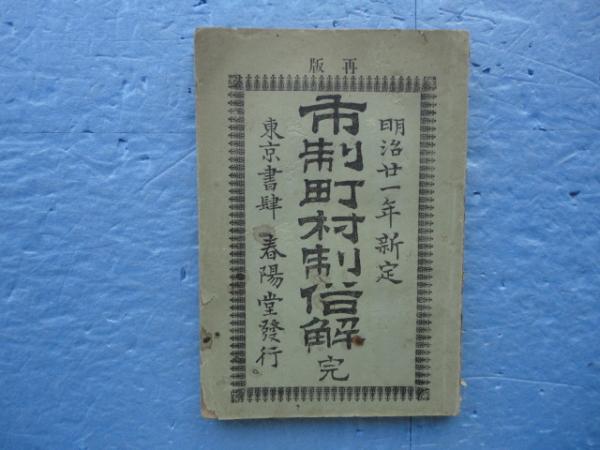 再版
明治廿一年新定
市制町村制俗解完
東京書肆 春陽堂發行。